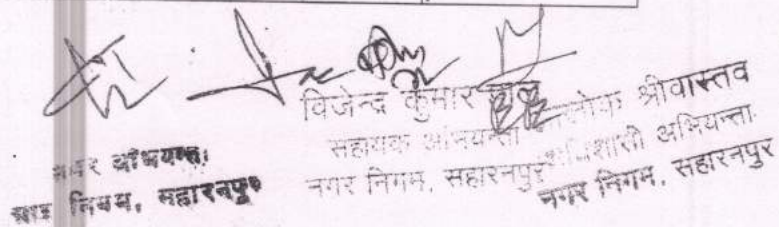 अवर अभियन्ता
नगर निगम, सहारनपुर
विजेन्द्र कुमार
सहायक अभियन्ता
नगर निगम, सहारनपुर
आलोक श्रीवास्तव
अधिशासी अभियन्ता
नगर निगम, सहारनपुर